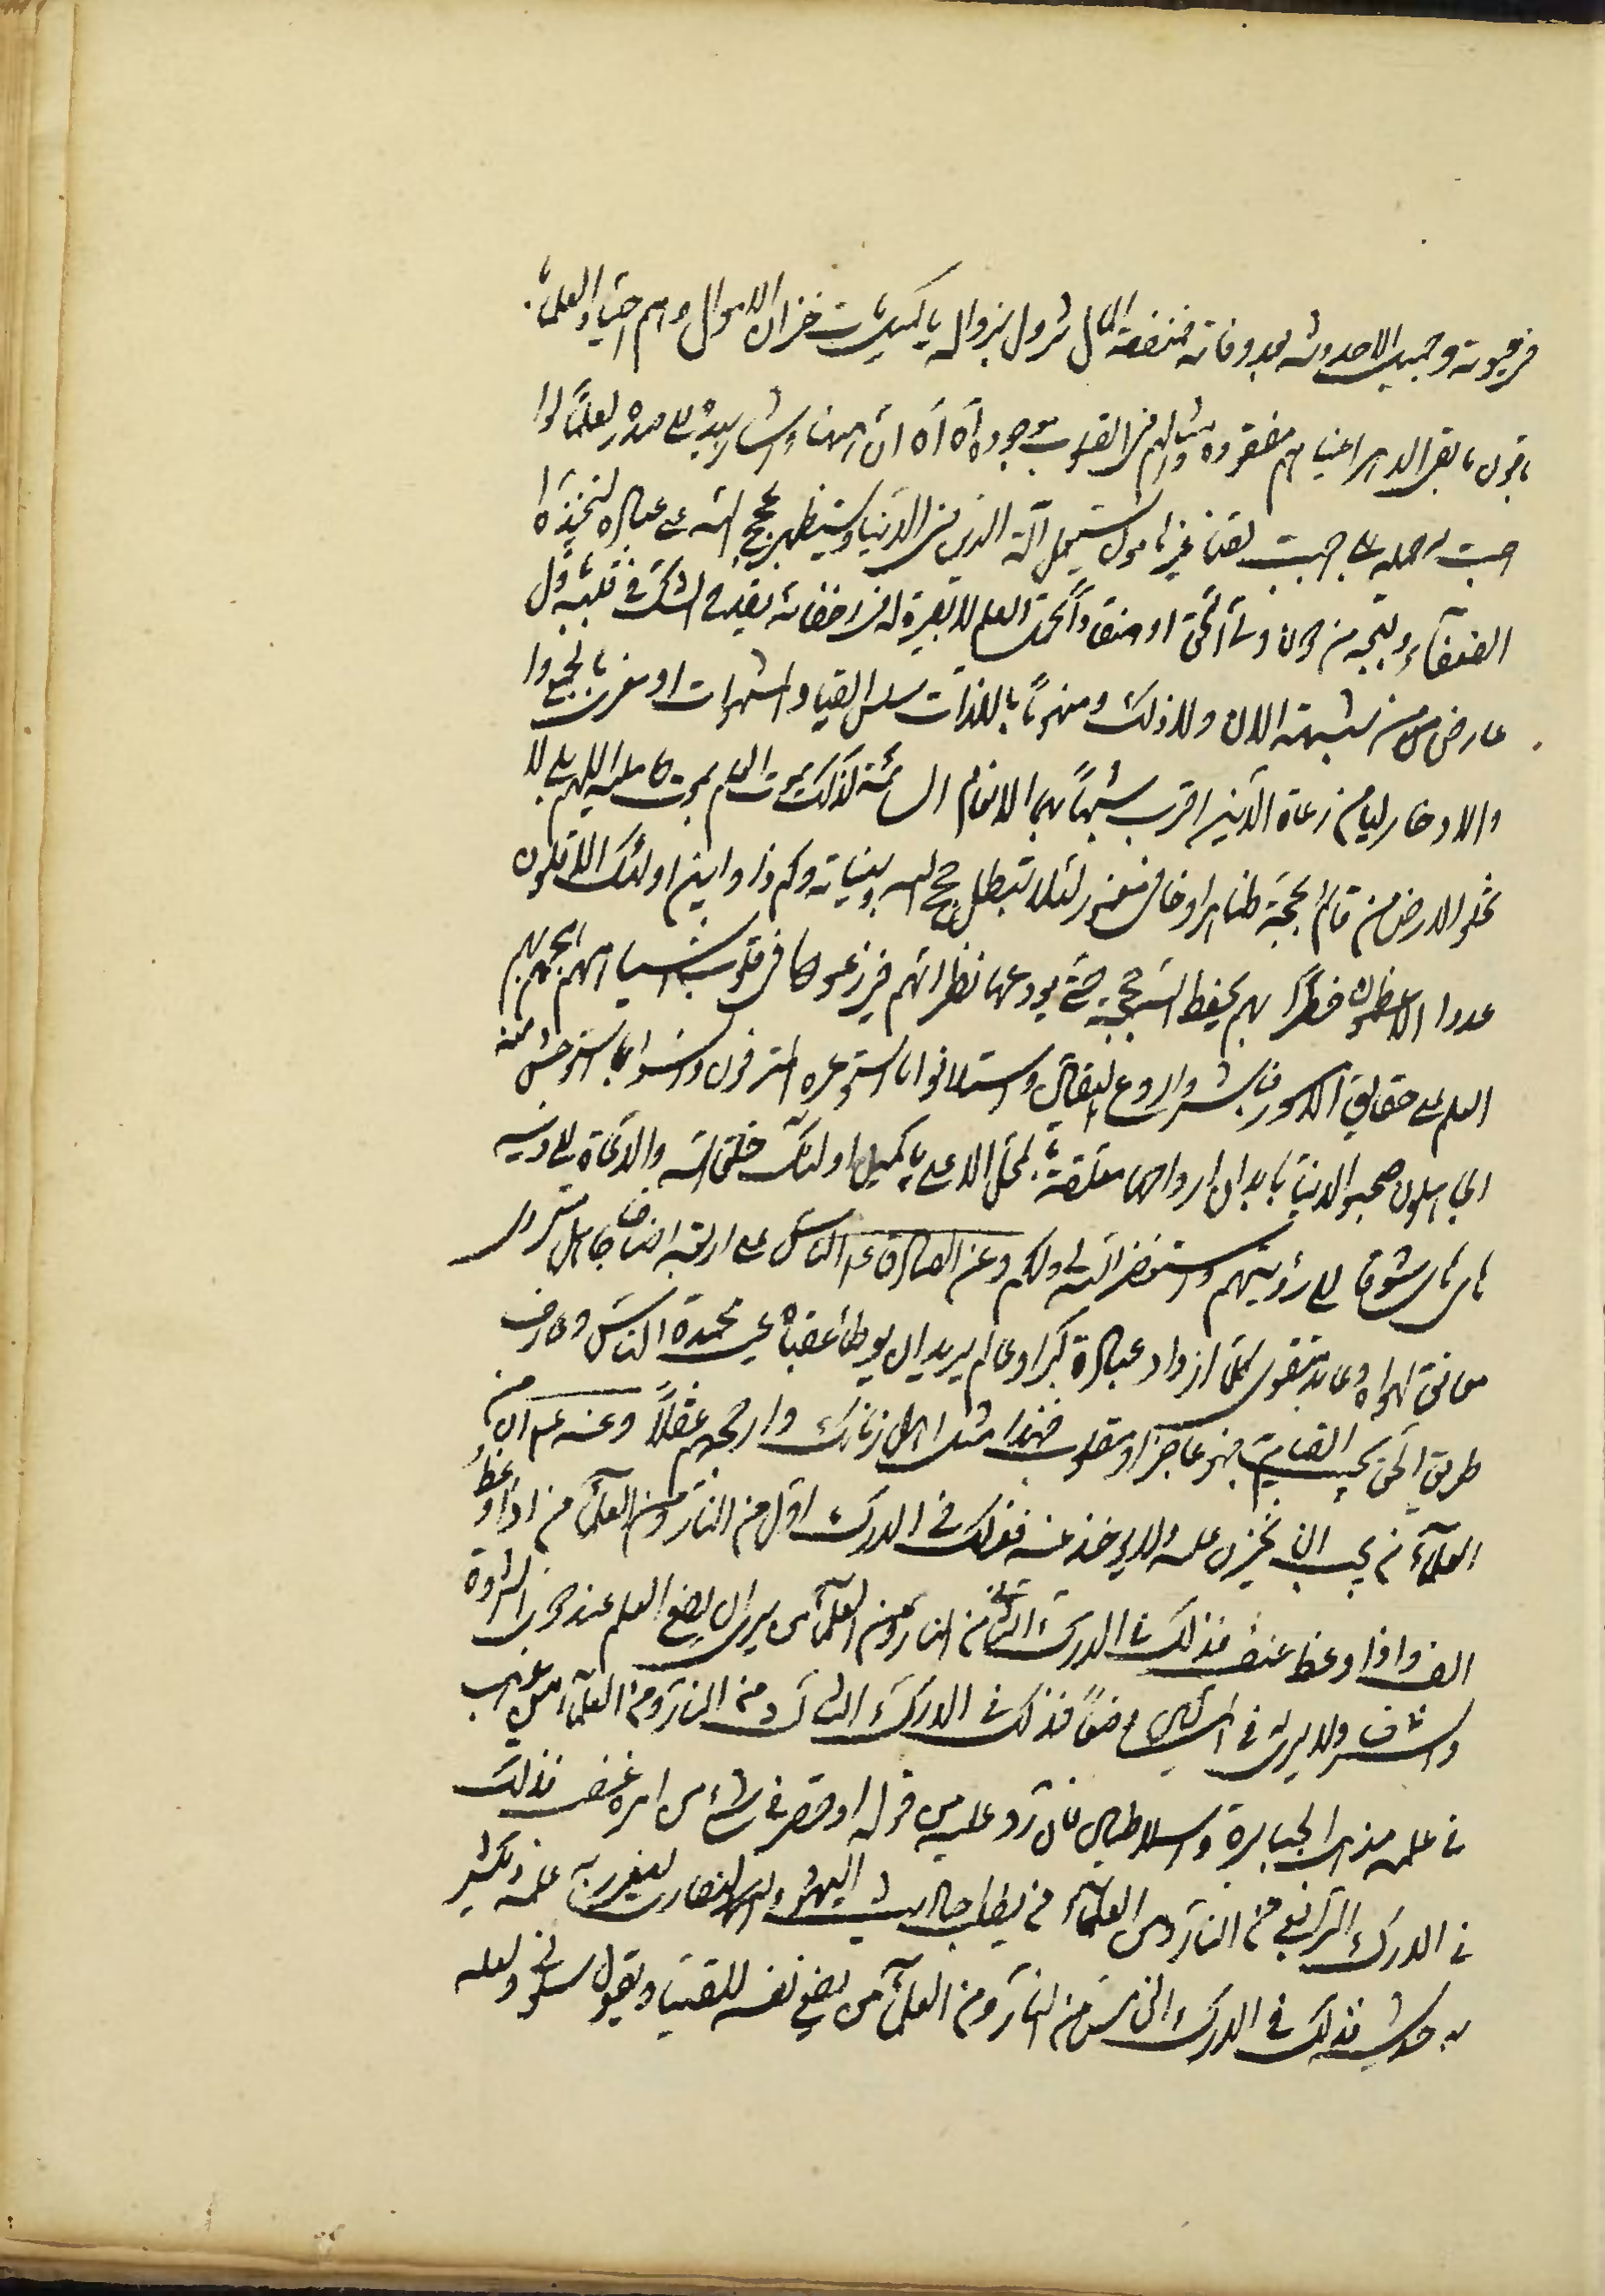 في حيوته وجميل الاحدوثة بعد وفاته فمنفعة المال تزول بزواله يا كميل مات خزان الاموال وهم احياء والعلماء
باقون ما بقي الدهر اعيانهم مفقودة وامثالهم في القلوب موجودة آه آه ان ههنا واشار بيده الى صدره لعلما لو
اصبت له حملة بلى اصبت لقنا غير مامون يستعمل آلة الدين في الدنيا ويستظهر بحجج الله على عباده ليتخذه
الضعفاء وليجة من دون ولي الحق او منقادا لحملة العلم لا بصيرة له في احنائه يقدح الشك في قلبه باول
عارض من شبهة الا لا ولا ذلك او منهوما باللذات سلس القياد للشهوات او مغرى بالجمع و
الادخار ليسا من رعاة الدين اقرب شبها بهما الانعام السائمة كذلك يموت العلم بموت حامليه اللهم بلى لا
تخلو الارض من قائم بحجة ظاهر او خاف مغمور لئلا تبطل حجج الله وبيناته وكم ذا واين اولئك الاقلون
عددا الاعظمون خطرا بهم يحفظ الله حججه حتى يودعها نظرائهم ويزرعوها في قلوب اشباههم هجم بهم
العلم على حقايق الامور فباشروا روح اليقين واستلانوا ما استوعره المترفون وانسوا بما استوحش منه
الجاهلون صحبوا الدنيا بابدان ارواحها معلقة بالمحل الاعلى يا كميل اولئك خلفاء الله والدعاة الى دينه
هاى هاى شوقا الى رؤيتهم واستغفر الله لي ولكم وعن الصادق ع الناس على اربعة اصناف جاهل متردى
معانق لهواه وعابد متقوى كلما ازداد عبادة كبرا وعالم يريد ان يوطأ عقباه ويحب محمدة الناس وعارف
طريق الحق يحب القيام به فهو عاجز او مغلوب فهذا امثل اهل زمانك وارجحهم عقلا وعنه ع ان من
العلماء من يحب ان يخزن علمه ولا يؤخذ عنه فذلك في الدرك اول من النار ومن العلماء من اذا وعظ
انف واذا وعظ عنف فذلك في الدرك الثاني من النار ومن العلماء من يرى ان يضع العلم عند ذوي الثروة
والشرف ولا يرى له في المساكين وضعا فذلك في الدرك الثالث من النار ومن العلماء من يذهب
في علمه مذهب الجبابرة والسلاطين فان رد عليه من قوله او قصر في شئ من امره غضب فذلك
في الدرك الرابع من النار ومن العلماء من يطلب احاديث اليهود والنصارى ليغزر به علمه ويكثر
به حديثه فذلك في الدرك الخامس من النار ومن العلماء من يضع نفسه للفتيا ويقول سلوني ولعله